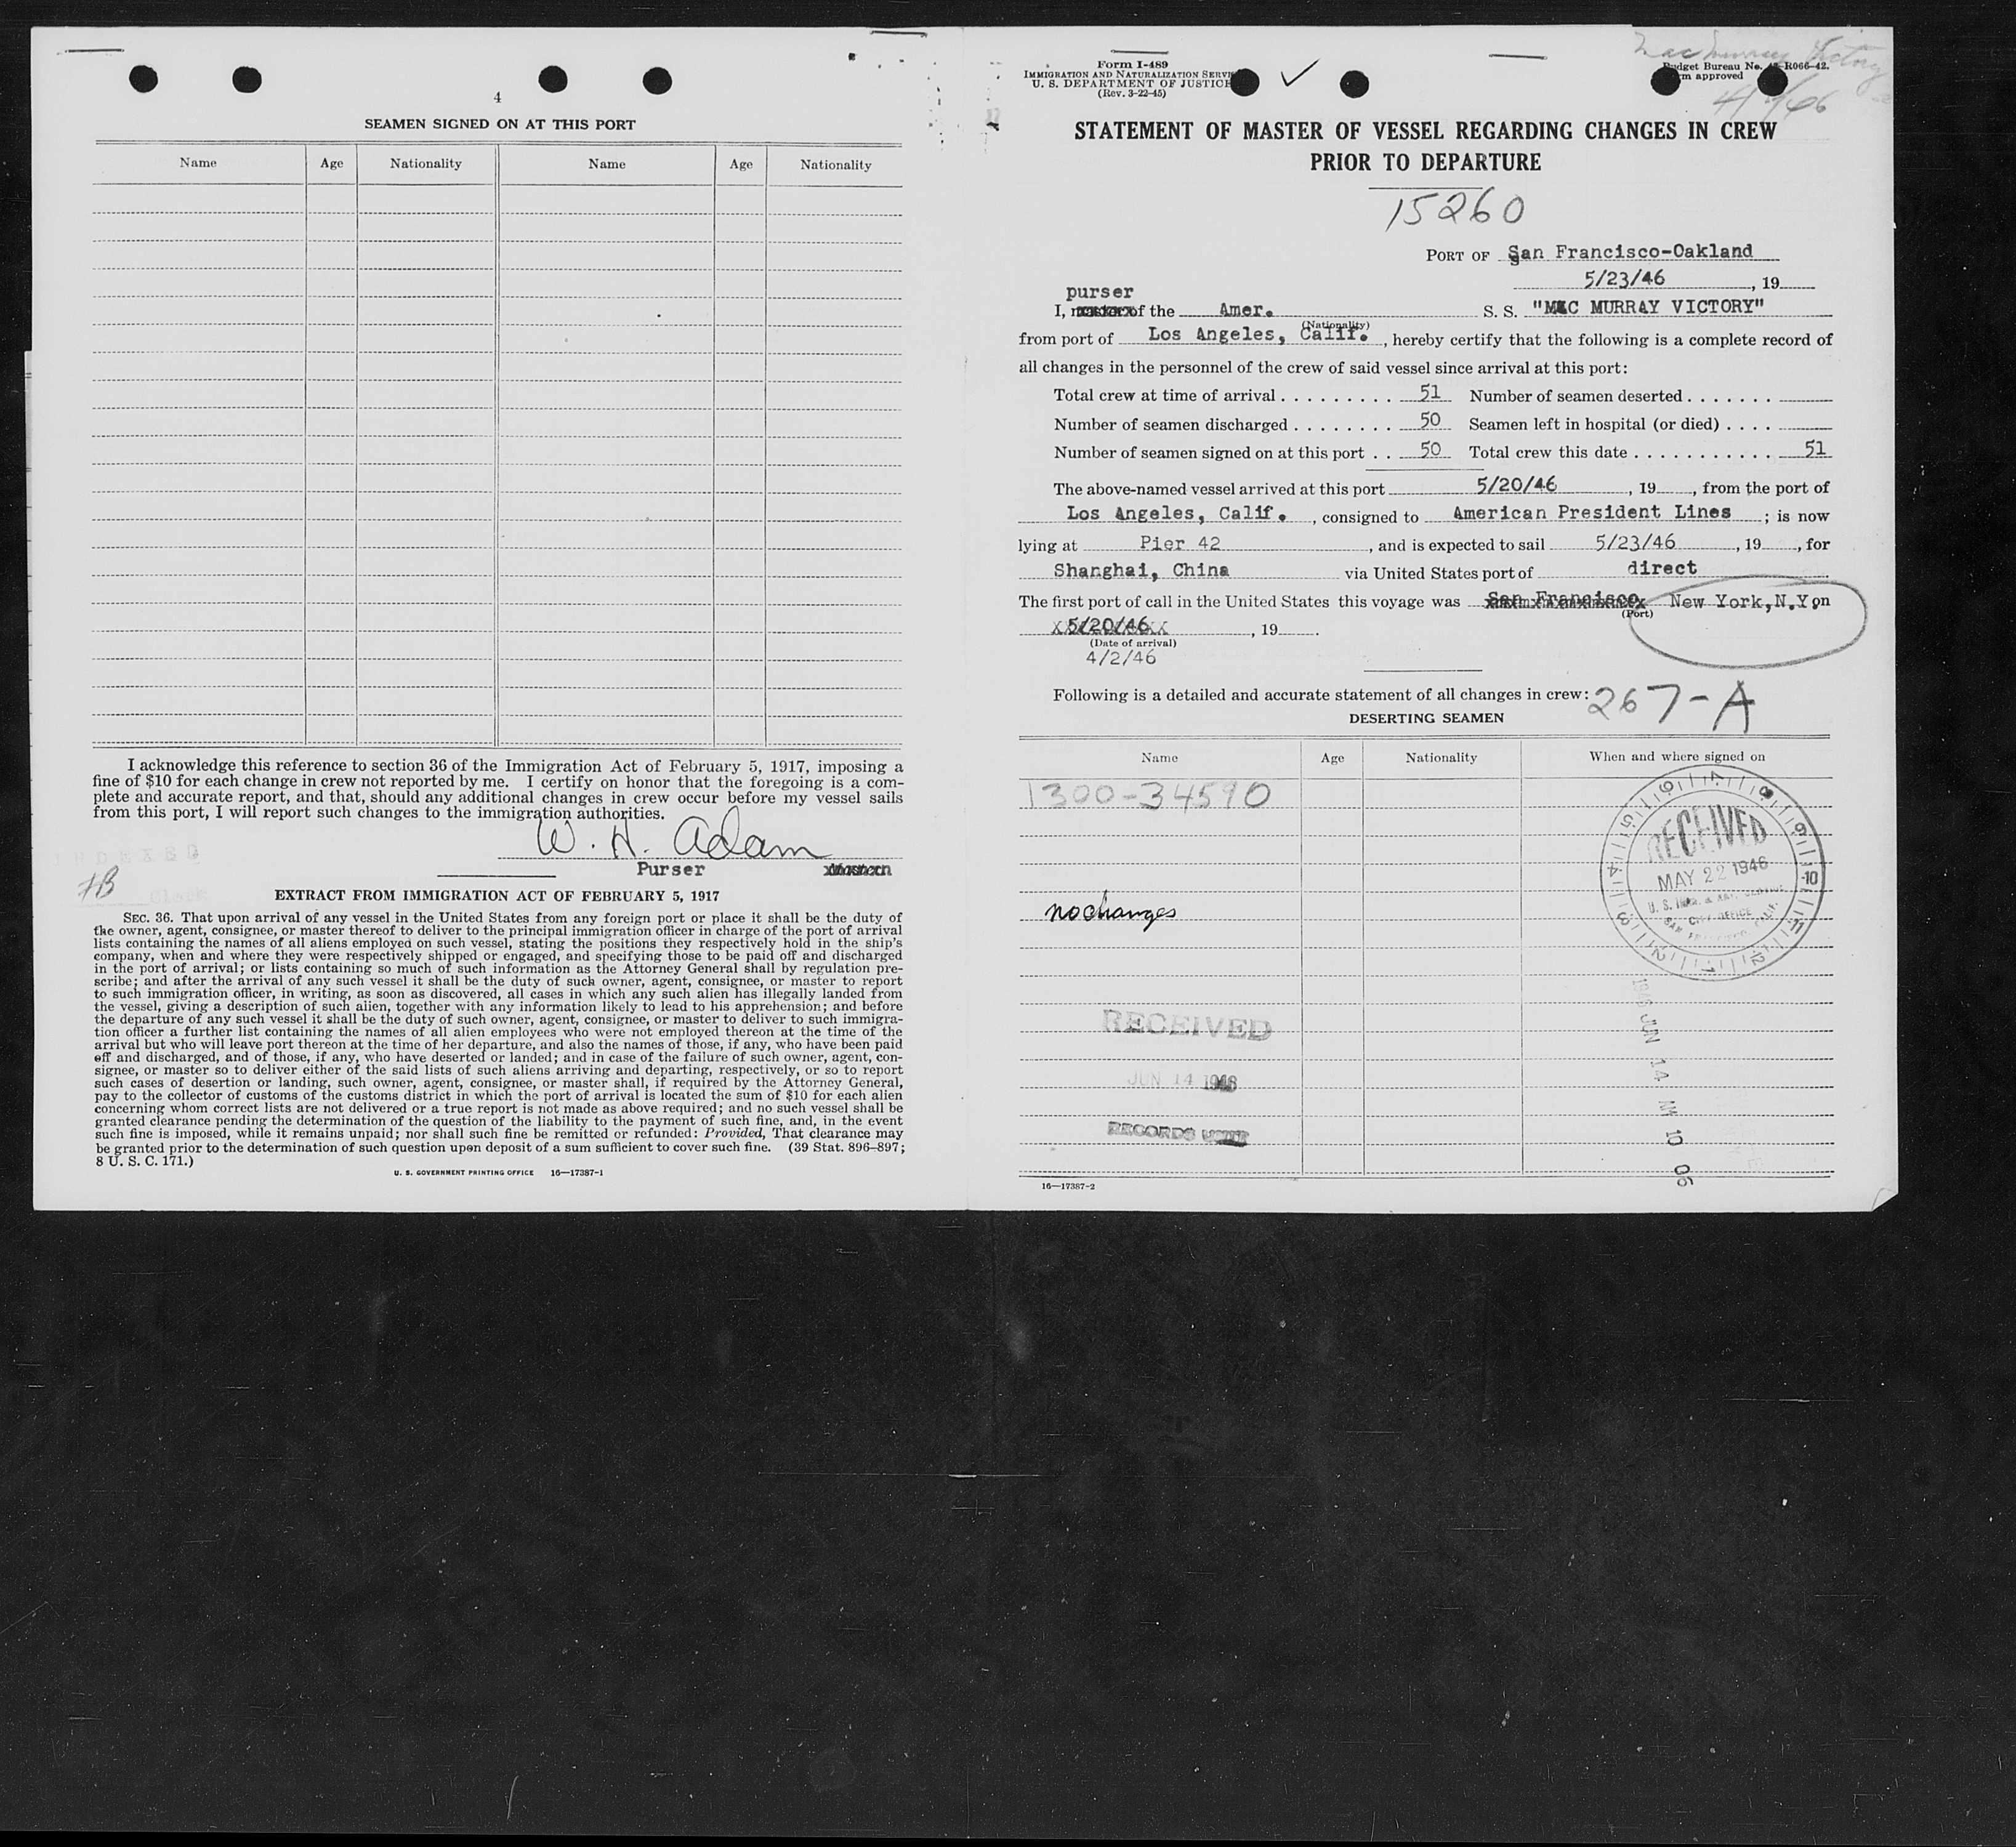 4
SEAMEN SIGNED ON AT THIS PORT
Name Age Nationality Name Age Nationality
I acknowledge this reference to section 36 of the Immigration Act of February 5, 1917, imposing a
fine of $10 for each change in crew not reported by me. I certify on honor that the foregoing is a com-
plete and accurate report, and that, should any additional changes in crew occur before my vessel sails
from this port, I will report such changes to the immigration authorities.
W. H. Adam
Purser
INDEXED
HB Clerk
EXTRACT FROM IMMIGRATION ACT OF FEBRUARY 5, 1917
SEC. 36. That upon arrival of any vessel in the United States from any foreign port or place it shall be the duty of
the owner, agent, consignee, or master thereof to deliver to the principal immigration officer in charge of the port of arrival
lists containing the names of all aliens employed on such vessel, stating the positions they respectively hold in the ship's
company, when and where they were respectively shipped or engaged, and specifying those to be paid off and discharged
in the port of arrival; or lists containing so much of such information as the Attorney General shall by regulation pre-
scribe; and after the arrival of any such vessel it shall be the duty of such owner, agent, consignee, or master to report
to such immigration officer, in writing, as soon as discovered, all cases in which any such alien has illegally landed from
the vessel, giving a description of such alien, together with any information likely to lead to his apprehension; and before
the departure of any such vessel it shall be the duty of such owner, agent, consignee, or master to deliver to such immigra-
tion officer a further list containing the names of all alien employees who were not employed thereon at the time of the
arrival but who will leave port thereon at the time of her departure, and also the names of those, if any, who have been paid
off and discharged, and of those, if any, who have deserted or landed; and in case of the failure of such owner, agent, con-
signee, or master so to deliver either of the said lists of such aliens arriving and departing, respectively, or so to report
such cases of desertion or landing, such owner, agent, consignee, or master shall, if required by the Attorney General,
pay to the collector of customs of the customs district in which the port of arrival is located the sum of $10 for each alien
concerning whom correct lists are not delivered or a true report is not made as above required; and no such vessel shall be
granted clearance pending the determination of the question of the liability to the payment of such fine, and, in the event
such fine is imposed, while it remains unpaid; nor shall such fine be remitted or refunded: Provided, That clearance may
be granted prior to the determination of such question upon deposit of a sum sufficient to cover such fine. (39 Stat. 896–897;
8 U. S. C. 171.)
U. S. GOVERNMENT PRINTING OFFICE 16—17387-1
Mac Murray Victory
Form I-489
IMMIGRATION AND NATURALIZATION SERVI
U. S. DEPARTMENT OF JUSTICE
(Rev. 3-22-45)
Budget Bureau No. 43-R066-42.
rm approved
STATEMENT OF MASTER OF VESSEL REGARDING CHANGES IN CREW
PRIOR TO DEPARTURE
15260
PORT OF San Francisco-Oakland
5/23/46, 19
purser
I, master of the Amer. S. S. "MAC MURRAY VICTORY"
(Nationality)
from port of Los Angeles, Calif., hereby certify that the following is a complete record of
all changes in the personnel of the crew of said vessel since arrival at this port:
Total crew at time of arrival . . . . . . . . . 51 Number of seamen deserted . . . . . . .
Number of seamen discharged . . . . . . . . 50 Seamen left in hospital (or died) . . . .
Number of seamen signed on at this port . . 50 Total crew this date . . . . . . . . . . . 51
The above-named vessel arrived at this port 5/20/46, 19, from the port of
Los Angeles, Calif., consigned to American President Lines; is now
lying at Pier 42, and is expected to sail 5/23/46, 19, for
Shanghai, China via United States port of direct
The first port of call in the United States this voyage was San Francisco New York, N.Y. on
(Port)
5/20/46, 19.
(Date of arrival)
4/2/46
Following is a detailed and accurate statement of all changes in crew: 267-A
DESERTING SEAMEN
Name Age Nationality When and where signed on
1300-34590
RECEIVED
MAY 22 1946
CITY OFFICE
no changes
RECEIVED
JUN 14 1946
RECORDS UNIT
1946 JUN 14 AM 10 06
16—17387-2